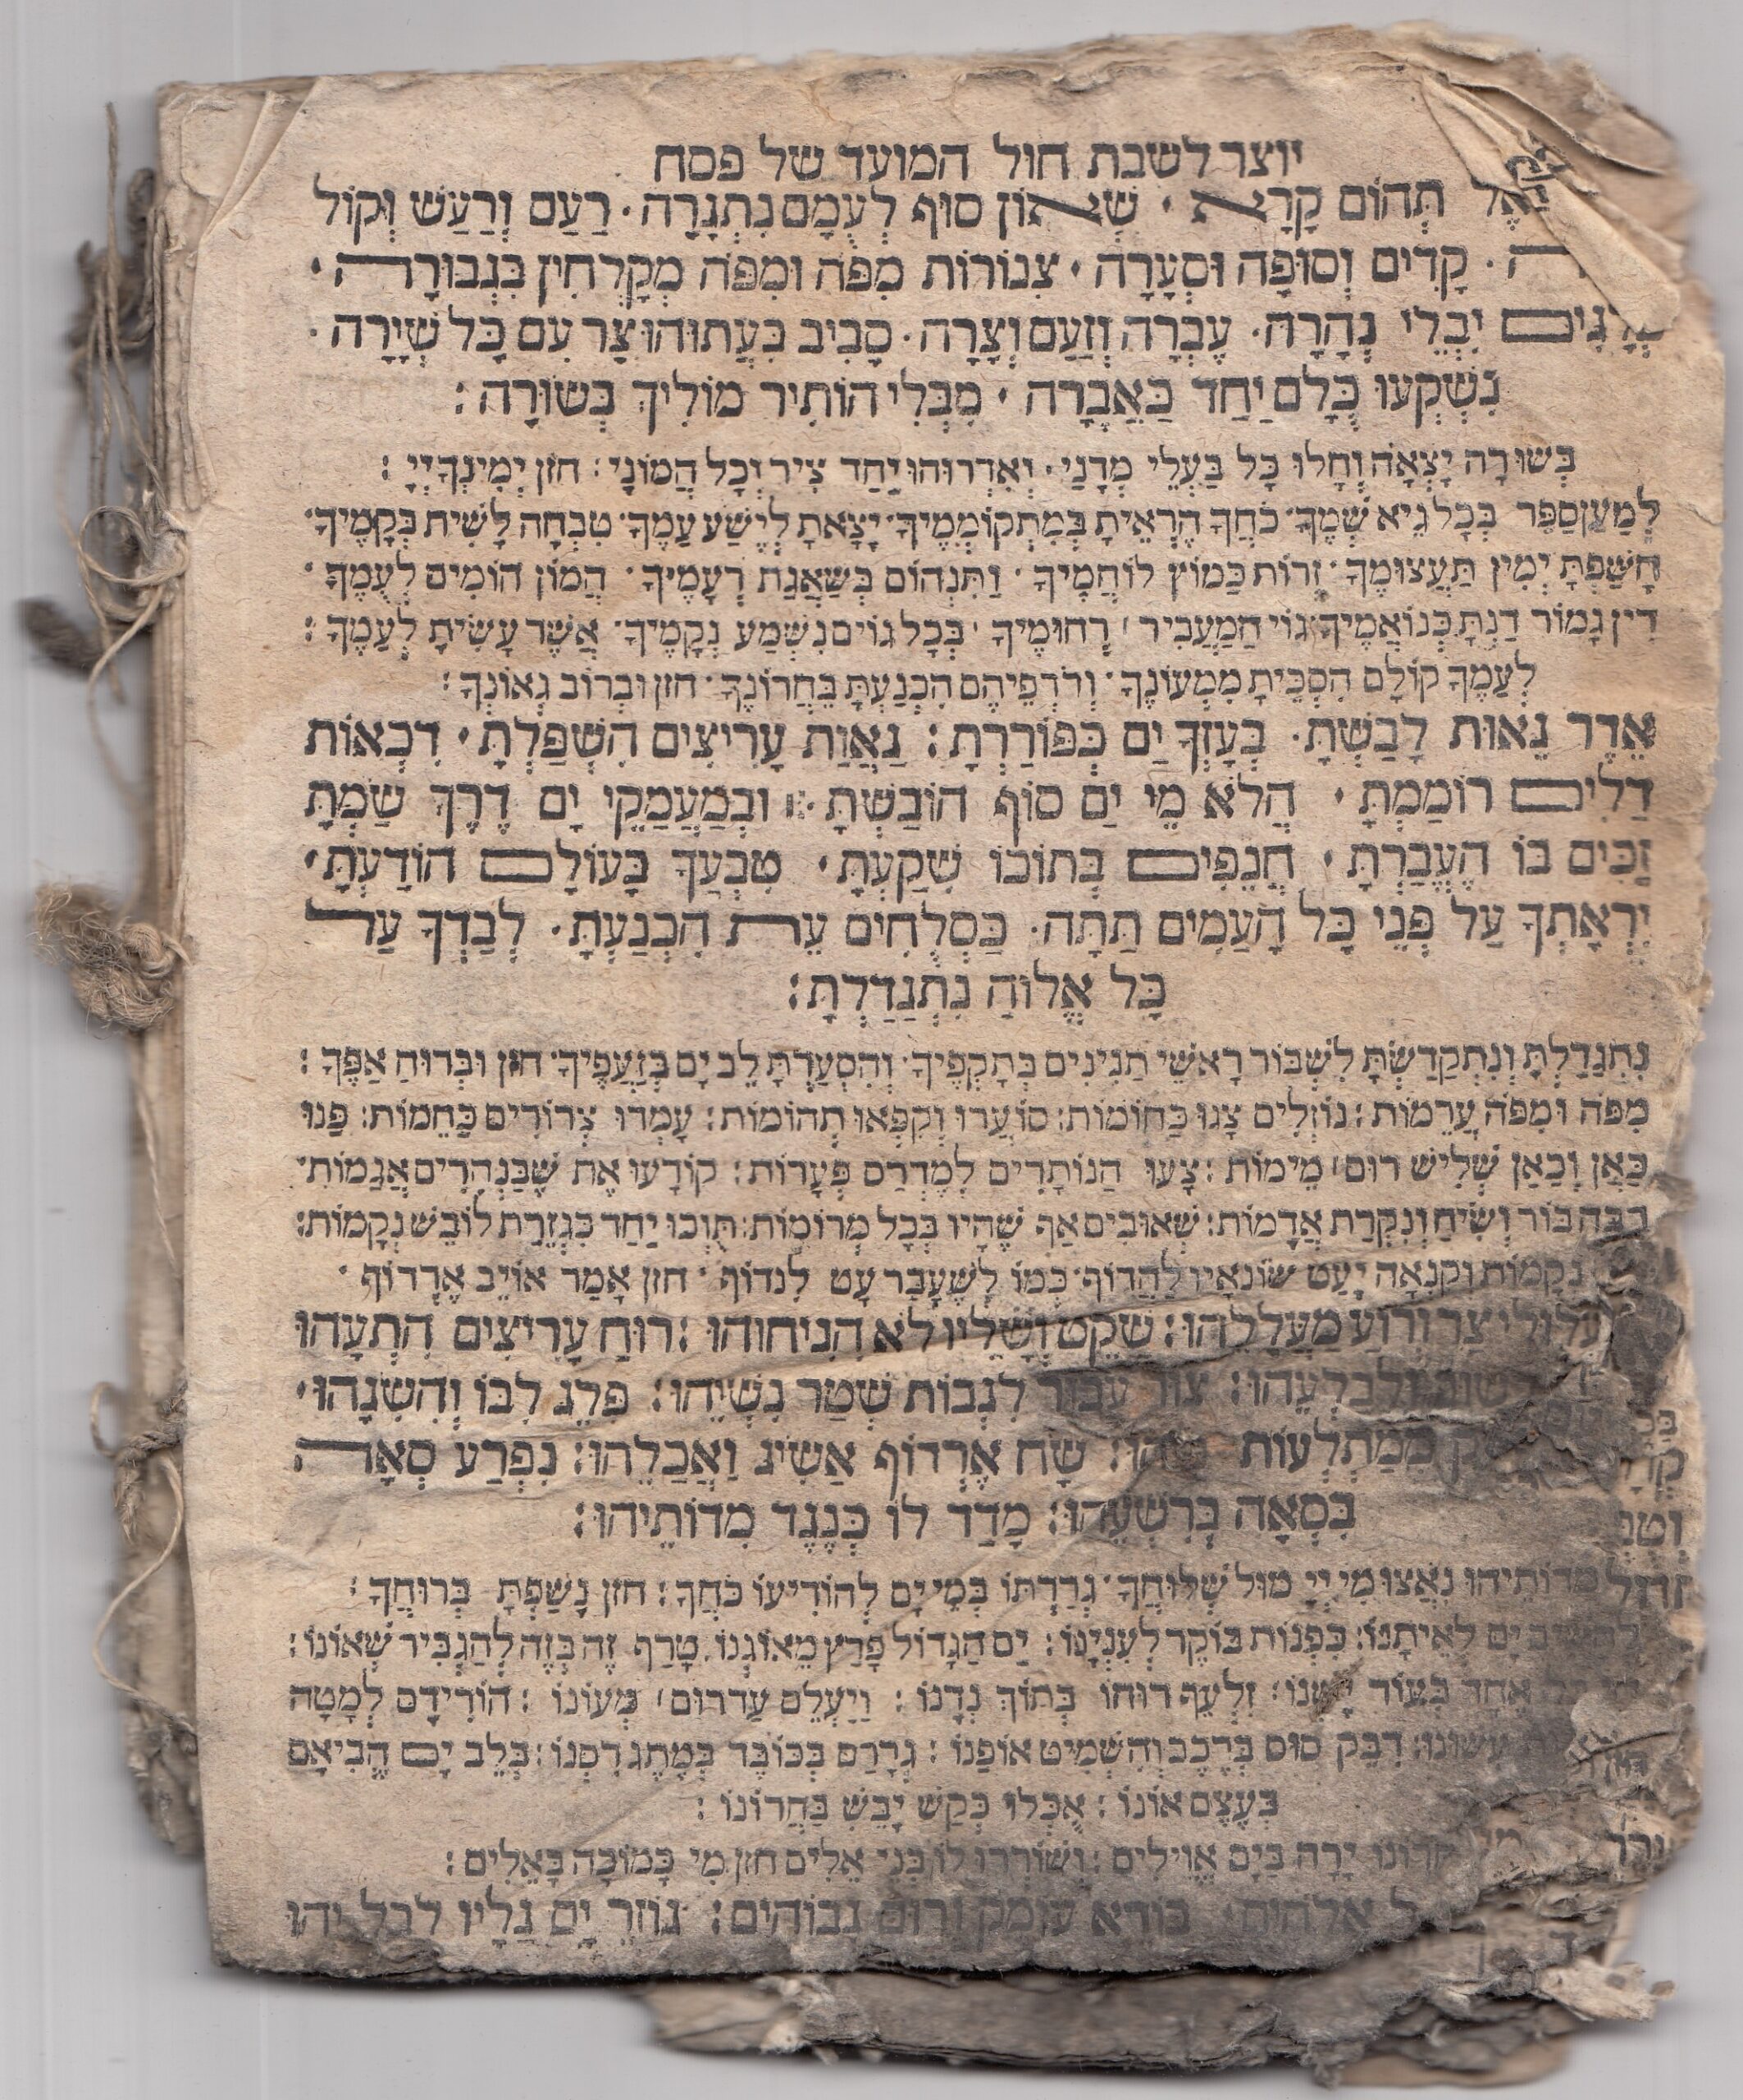 יוצר לשבת חול המועד של פסח
תְּהוֹם קָרָא · שְׁאוֹן סוּף לְעֻמָּם נִתְגָּרָה · רַעַם וְרַעַשׁ וְקוֹל
קָדִים וְסוּפָה וּסְעָרָה · צִנּוֹרוֹת מִפֹּה וּמִפֹּה מְקַלְּחִין בִּגְבוּרָה ·
יִבְלֵי נְהָרָה · עֶבְרָה וְזַעַם וְצָרָה · סָבִיב בִּעֲתוּהוּ צַר עִם כָּל שְׁיָרָה ·
נִשְׁקְעוּ כֻּלָּם יַחַד כַּאֲבָרָה · מִבְּלִי הוֹתִיר מוֹלִיךְ בְּשׂוֹרָה :
בְּשׂוֹרָה יָצְאָה וְחָלוּ כָּל בַּעֲלֵי מְדָנַי · וְאִדְּרוּהוּ יַחַד צִיר וְכָל הֲמוֹנָי : חזן יְמִינְךָ יְיָ :
לְמַעַן סַפֵּר בְּכָל גֵּיא שְׁמֶךָ · כֹּחֲךָ הֶרְאֵיתָ בְּמִתְקוֹמְמֶיךָ · יָצָאתָ לְיֵשַׁע עַמֶּךָ · טִבְחָה לָשִׁית בְּקָמֶיךָ ·
חָשַׂפְתָּ יְמִין תַּעֲצוּמֶךָ · זְרוֹת כַּמּוֹץ לוֹחֲמֶיךָ · וַתִּנְהוֹם כְּשַׁאֲגַת רְעָמֶיךָ · הֲמוֹן הוֹמִים לְעֻמֶּךָ ·
דִּין גָּמוּר דַּנְתָּ בְּנוֹאֲמֶיךָ גוֹי הַמַּעֲבִיר רְחוּמֶיךָ · בְּכָל גּוֹיִם נִשְׁמַע נְקָמֶיךָ · אֲשֶׁר עָשִׂיתָ לְעַמֶּךָ :
לְעַמֶּךָ קוֹלָם הִסְכֵּיתָ מִמְּעוֹנֶךָ · וְרֹדְפֵיהֶם הִכְנַעְתָּ בַּחֲרוֹנֶךָ · חזן וּבְרוֹב גְּאוֹנְךָ :
אֶדֶר גֵּאוּת לָבַשְׁתָּ · בְּעָזְּךָ יַם כְּפוֹרַרְתָּ : גַּאֲוַת עָרִיצִים הִשְׁפַּלְתָּ · דִּכְאוּת
דַּלִּים רוֹמַמְתָּ · הֲלֹא מֵי יַם סוּף הוֹבַשְׁתָּ : וּבְמַעֲמַקֵּי יָם דֶּרֶךְ שַׂמְתָּ
זַכִּים בּוֹ הֶעֱבַרְתָּ · חֲנֵפִים בְּתוֹכוֹ שִׁקַּעְתָּ · טִבְעֲךָ בָּעוֹלָם הוֹדַעְתָּ ·
יִרְאָתְךָ עַל פְּנֵי כָּל הָעַמִּים תַּתָּה · כַּסְלֻחִים עֵת הִכְנַעְתָּ · לְבַדְּךָ עַל
כָּל אֱלוֹהַּ נִתְגַּדַּלְתָּ :
נִתְגַּדַּלְתָּ וְנִתְקַדַּשְׁתָּ לִשְׁבּוֹר רָאשֵׁי תַנִּינִים בְּתָקְפֶּיךָ · וְהִסְעַרְתָּ לֵב יָם בְּזַעְפֶּיךָ · חזן וּבְרוּחַ אַפֶּךָ :
מִפֹּה וּמִפֹּה עֲרֵמוֹת : נוֹזְלִים צָגוּ כַּחוֹמוֹת : סוֹעֲרוּ וְקִפְּאוּ תְהוֹמוֹת : עָמְדוּ צְרוּרִים כַּחֵמוֹת : פַּנּוּ
כָּאן וְכָאן שְׁלִישׁ רוּם מֵימוֹת : צָעוּ הַנּוֹתָרִים לְמִדְרַס פְּעָמוֹת : קוֹדָעוּ אֶת שֶׁבַּנְּהָרִים אֲגַמּוֹת ·
רַבָּה בוֹר וְשִׂיחַ וְנִקְרַת אֲדָמוֹת : שְׁאוּבִים אַף שֶׁהָיוּ בְּכָל מְרוֹמוֹת : תֻּוְּכוּ יַחַד כִּגְזֵרַת לוֹבֵשׁ נְקָמוֹת :
נְקָמוֹת וְקִנְאָה יָעַט שׂוֹנְאָיו לַהֲדוֹף · כְּמוֹ לְשֶׁעָבַר עָט לִנְדּוֹף · חזן אָמַר אוֹיֵב אֶרְדּוֹף ·
צַר וְרוֹעַ מַעֲלָלֵהוּ : שַׁקֵּט וְשָׁלֵיו לֹא הִנִּיחוּהוּ : רוּחַ עָרִיצִים הִתְעָהוּ
לִגְבּוֹת שְׁטַר נִשְׁיֵהוּ : פִּלֵּג לִבּוֹ וְהִשְׁגָּהוּ ·
מִמְּתַלְּעוֹת שָׂח אֶרְדּוֹף אַשִּׂיג וַאֲכַלֵּהוּ : נִפְרַע סְאָה
בִּסְאָה בְּרִשְׁעֵהוּ : מָדַד לוֹ כְּנֶגֶד מִדּוֹתֵיהוּ :
מִדּוֹתֵיהוּ נִאֲצוּ מִי יְיָ מוּל שְׁלוּחֶךָ · גְּרַרְתּוֹ בְּמֵי יָם לְהוֹדִיעוֹ כֹּחֶךָ : חזן נָשַׁפְתָּ בְּרוּחֲךָ :
יָם לְאֵיתָנוֹ : כִּפְנוֹת בּוֹקֶר לְעִנְיָנוֹ : יַם הַגָּדוֹל פָּרַץ מֵאוֹגְנוֹ · טָרַף זֶה בָּזֶה לְהַגְבִּיר שְׁאוֹנוֹ :
אֶחָד זִלְעֵף רוּחוֹ בְּתוֹךְ נְדָנוֹ : וַיַּעֲלֵם עַד רוּם מְעוֹנוֹ : הוֹרִידָם לְמַטָּה
דִּבֵּק סוּס בְּרֶכֶב וְהִשְׁמִיט אוֹפַנּוֹ : גְּרָרָם בְּכוֹבֶד בְּמֶתֶג רִסְנוֹ : בְּלֵב יָם הֱבִיאָם
בְּעֶצֶם אוֹנוֹ : אֻכְּלוּ כְּקַשׁ יָבֵשׁ בַּחֲרוֹנוֹ :
יָרָה בַּיָּם אֱוִילִים : וְשׁוֹרְרוּ לוֹ בְּנֵי אֵלִים חזן מִי כָּמוֹכָה בָּאֵלִים :
אֱלֹהִים בּוֹרֵא עוֹמֶק וְרוּם גְּבוֹהִים : גּוֹזֵר יָם